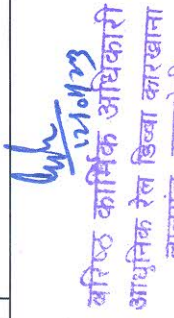 12/01/23
वरिष्ठ कार्मिक अधिकारी
आधुनिक रेल डिब्बा कारखाना